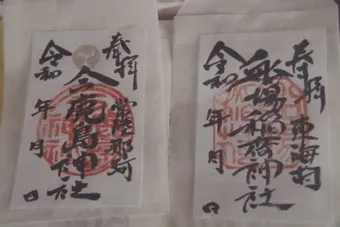 奉拝
常陸那珂
今鹿島神社
令和 年 月 日
奉拝
東海村
船場稲荷神社
令和 年 月 日